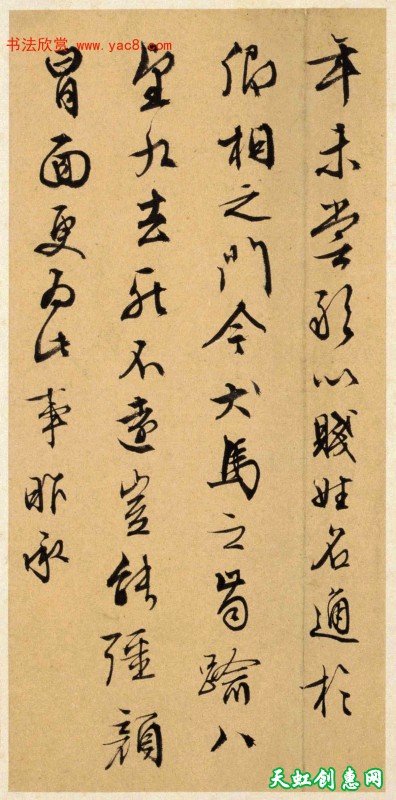 书法欣赏 www.yac8.com
年未嘗敢以賤姓名通於
卿相之門今犬馬之齒踰八
望九去死不遠豈能彊顏
冒面更為此事昨承
天虹创惠网